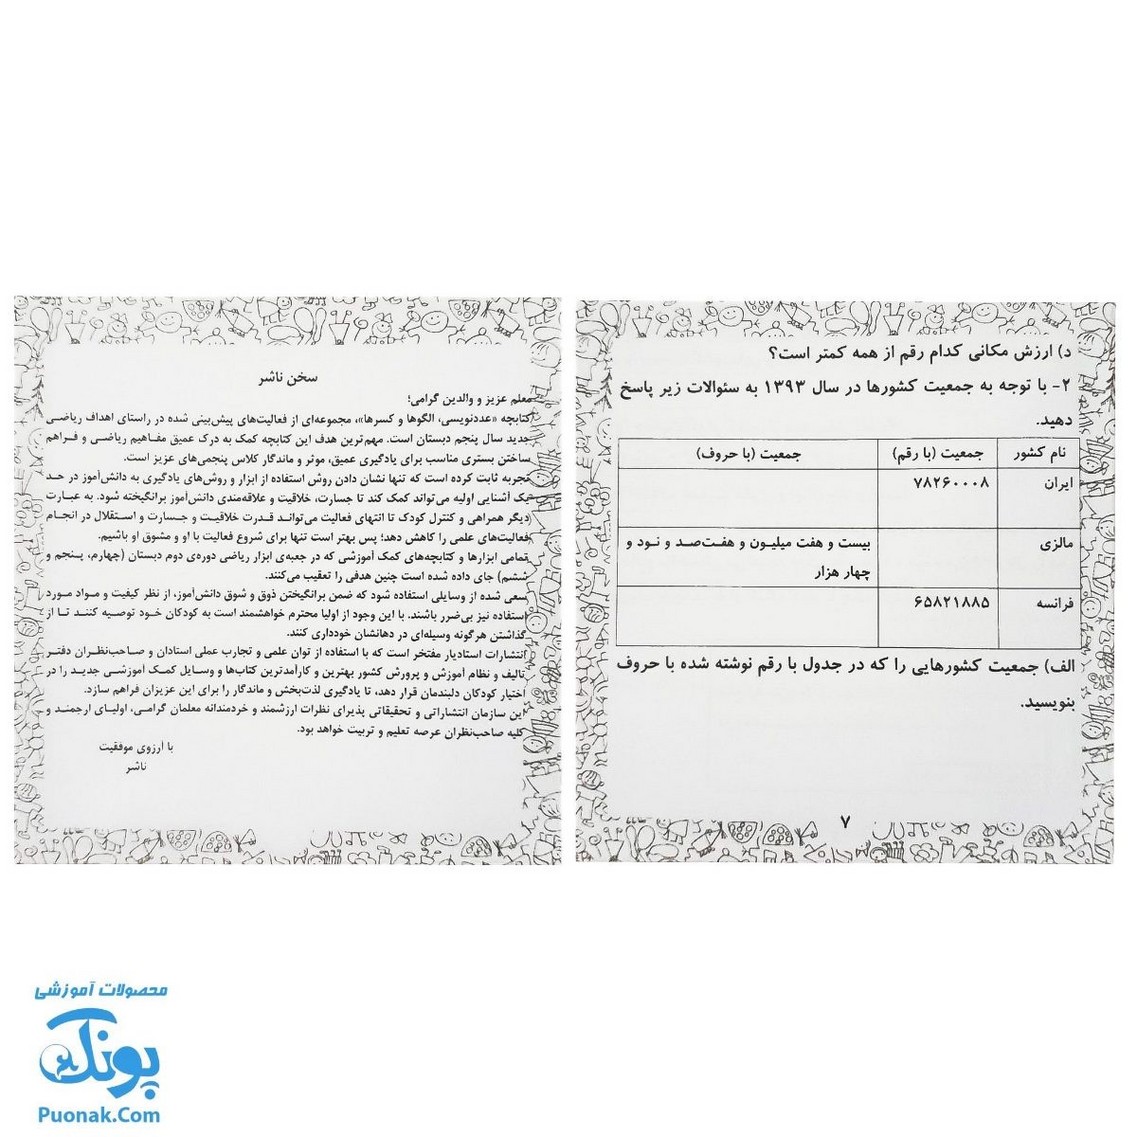 د) ارزش مکانی کدام رقم از همه کمتر است؟
۲- با توجه به جمعیت کشورها در سال ۱۳۹۳ به سئوالات زیر پاسخ
دهید.
نام کشور جمعیت (با رقم) جمعیت (با حروف)
ایران ۷۸۲۶۰۰۰۸
مالزی بیست و هفت میلیون و هفت‌صد و نود و
چهار هزار
فرانسه ۶۵۸۲۱۸۸۵
الف) جمعیت کشورهایی را که در جدول با رقم نوشته شده با حروف
بنویسید.
۷
سخن ناشر
معلم عزیز و والدین گرامی؛
کتابچه «عددنویسی، الگوها و کسرها»، مجموعه‌ای از فعالیت‌های پیش‌بینی شده در راستای اهداف ریاضی
جدید سال پنجم دبستان است. مهم‌ترین هدف این کتابچه کمک به درک عمیق مفاهیم ریاضی و فراهم
ساختن بستری مناسب برای یادگیری عمیق، موثر و ماندگار کلاس پنجمی‌های عزیز است.
تجربه ثابت کرده است که تنها نشان دادن روش استفاده از ابزار و روش‌های یادگیری به دانش‌آموز در حد
یک آشنایی اولیه می‌تواند کمک کند تا جسارت، خلاقیت و علاقه‌مندی دانش‌آموز برانگیخته شود. به عبارت
دیگر همراهی و کنترل کودک تا انتهای فعالیت می‌تواند قدرت خلاقیت و جسارت و استقلال در انجام
فعالیت‌های علمی را کاهش دهد؛ پس بهتر است تنها برای شروع فعالیت با او و مشوق او باشیم.
تمامی ابزارها و کتابچه‌های کمک آموزشی که در جعبه‌ی ابزار ریاضی دوره‌ی دوم دبستان (چهارم، پنجم و
ششم) جای داده شده است چنین هدفی را تعقیب می‌کنند.
سعی شده از وسایلی استفاده شود که ضمن برانگیختن ذوق و شوق دانش‌آموز، از نظر کیفیت و مواد مورد
استفاده نیز بی‌ضرر باشند. با این وجود از اولیا محترم خواهشمند است به کودکان خود توصیه کنند تا از
گذاشتن هرگونه وسیله‌ای در دهانشان خودداری کنند.
انتشارات استادیار مفتخر است که با استفاده از توان علمی و تجارب عملی استادان و صاحب‌نظران دفتر
تالیف و نظام آموزش و پرورش کشور بهترین و کارآمدترین کتاب‌ها و وسایل کمک آموزشی جدید را در
اختیار کودکان دلبندمان قرار دهد، تا یادگیری لذت‌بخش و ماندگار را برای این عزیزان فراهم سازد.
این سازمان انتشاراتی و تحقیقاتی پذیرای نظرات ارزشمند و خردمندانه معلمان گرامی، اولیای ارجمند و
کلیه صاحب‌نظران عرصه تعلیم و تربیت خواهد بود.
با آرزوی موفقیت
ناشر
محصولات آموزشی
پونک
Puonak.Com